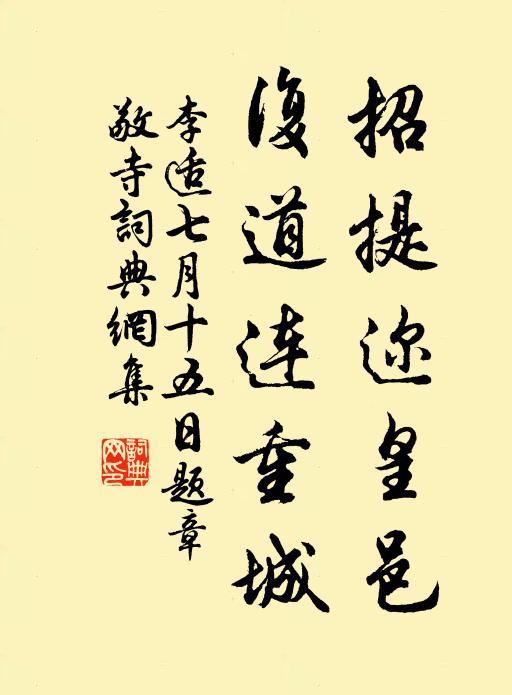 招提迩皇邑
復道連重城
李适七月十五日题章
敬寺詞典網集
詞典網印